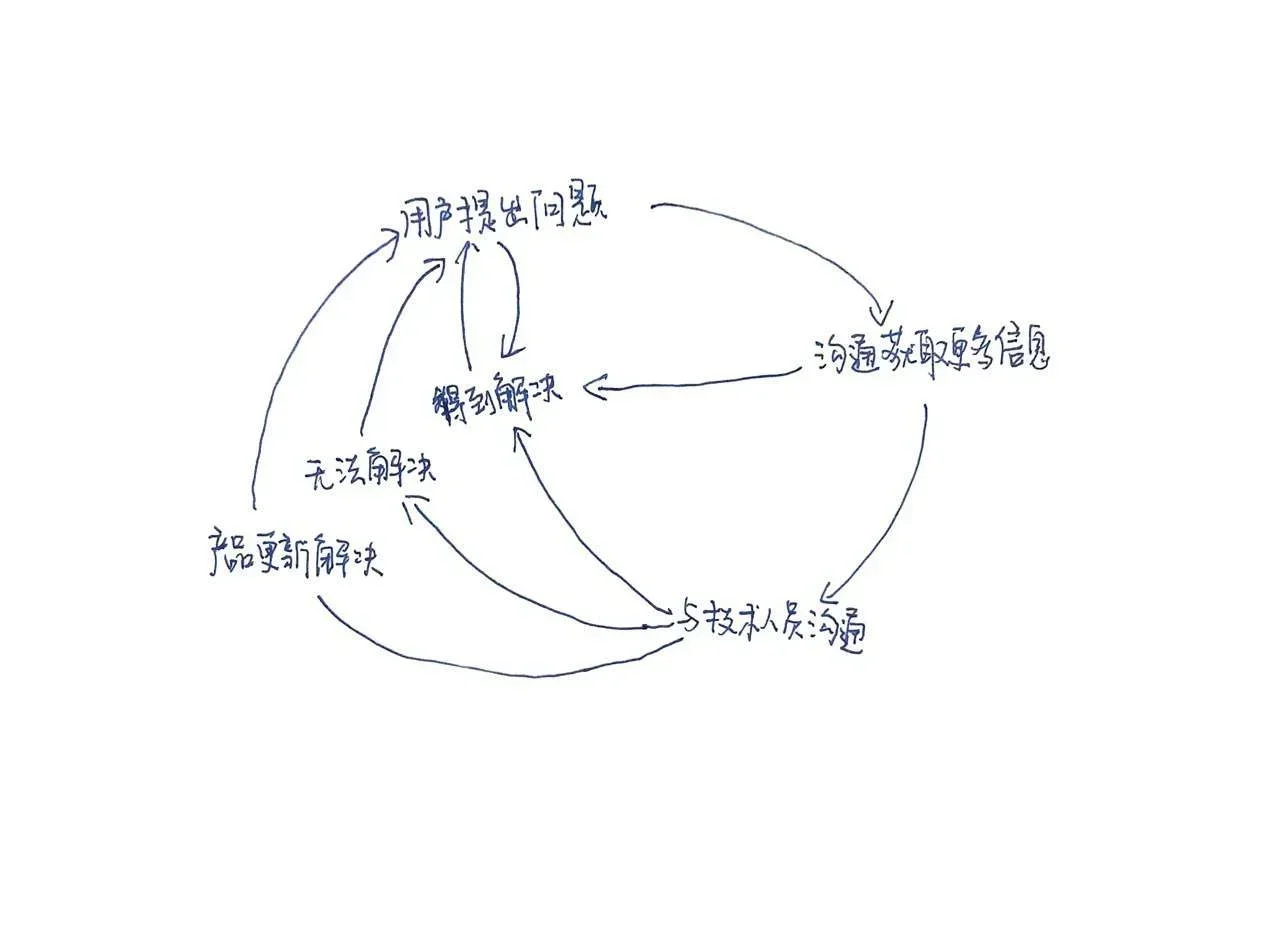 用户提出问题
沟通获取更多信息
得到解决
无法解决
产品更新解决
与技术人员沟通